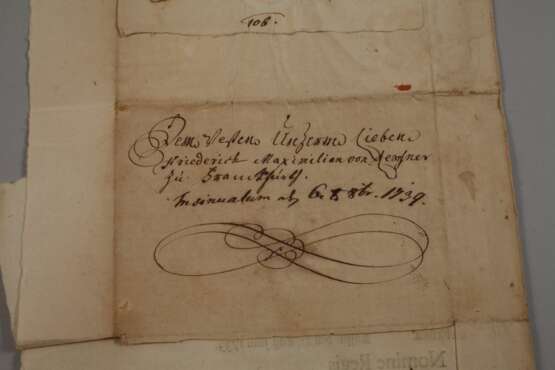 108.
Dem Vesten Unserm Lieben
Friederich Maximilian von
zu Franckfurth.
Insinuatum 8br. 1739.
Nomine Regis